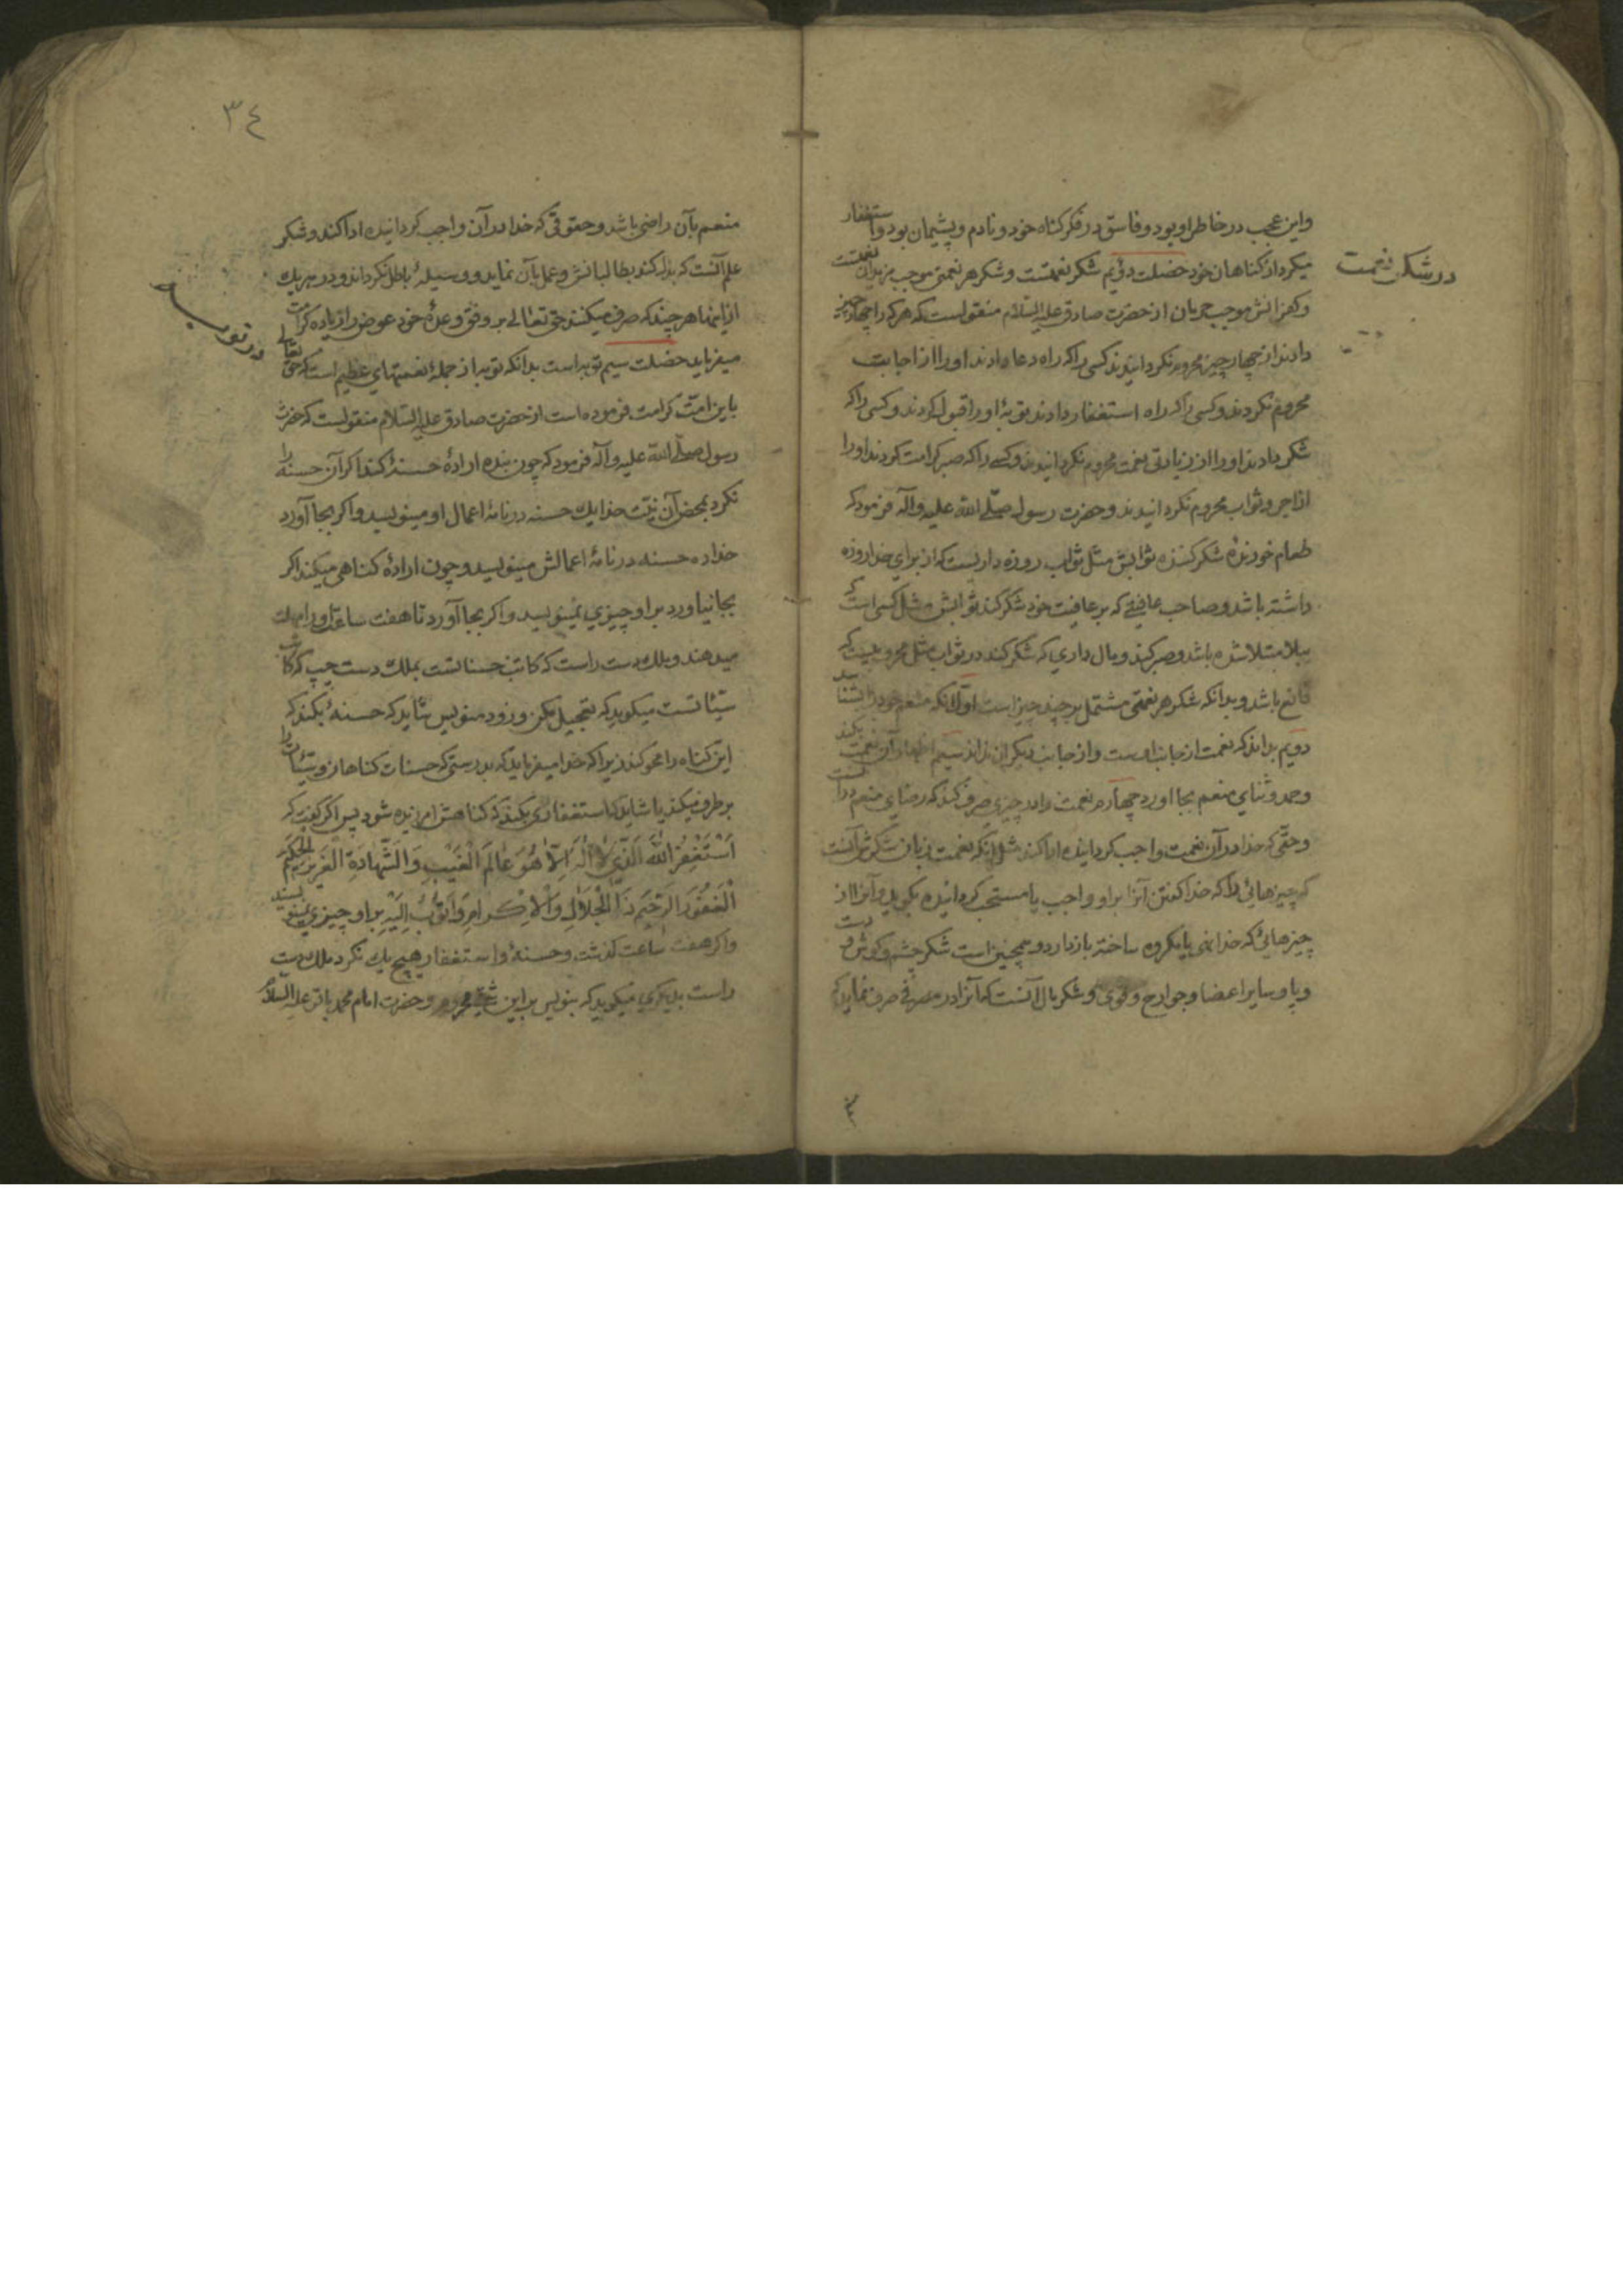 در شکر نعمت
و این عجب در خاطر او بود و فاسق در فکر گناه خود و نادم و پشیمان بود و استغفار
میکرد از گناهان خود خصلت دویم شکر نعمتست و شکر هر نعمتی موجب مزید آن نعمتست
و کفرانش موجب حرمان از حضرت صادق علیه السلام منقولست که هر که را چهار چیز
دادند از چهار چیز محروم نکردانیدند کسی را که راه دعا دادند او را از اجابت
محروم نکردند و کسی را که راه استغفار دادند توبهٔ او را قبول کردند و کسی را که
شکر دادند او را از زیادتی نعمت محروم نکردانیدند و کسی را که صبر کرامت کردند او را
از اجر و ثواب محروم نکردانیدند و حضرت رسول صلّی الله علیه و آله فرمود که
طعام خورندهٔ شکر کننده ثوابش مثل ثواب روزه داریست که از برای خدا روزه
داشته باشد و صاحب عافیتی که بر عافیت خود شکر کند ثوابش مثل کسی است که
ببلا مبتلا شده باشد و صبر کند و مال داری که شکر کند در ثواب مثل محرومیست که
قانع باشد و بدانکه شکر هر نعمتی مشتمل بر چند چیز است اوّل آنکه منعم خود را بشناسد
دویم بداند که نعمت از جانب اوست و از جانب دیگران نداند سیم اظهار آن نعمت بکند
و حمد و ثنای منعم بجا آورد چهارم نعمت را در چیزی صرف کند که رضای منعم در آنست
و حقّی که خدا در آن نعمت واجب کردانیده ادا کند مثل آنکه نعمت زبان شکرش آنست
که چیزهائی را که خدا گفتن آنرا بر او واجب یا مستحب کردانیده بگوید و آنرا از
چیزهائی که خدا نهی یا مکروه ساخته باز دارد و همچنین است شکر چشم و گوش و دست
و پا و سایر اعضا و جوارح و قوی و شکر مال آنست که آنرا در مصرفی صرف نماید که
۳۴
منعم بآن راضی باشد و حقوقی که خدا در آن واجب کردانیده ادا کند و شکر
علم آنست که بذل کند بطالبانش و عمل بآن نماید و وسیلهٔ باطل نکرداند و در هر یک
از اینها هر چند که صرف میکنند حق تعالی بر وفق وعدهٔ خود عوض را زیاده کرامت
میفرماید خصلت سیم توبه است بدانکه توبه از جملهٔ نعمتهای عظیم است که حق تعالی
در توبه
باین امّت کرامت فرموده است از حضرت صادق علیه السلام منقولست که حضرت
رسول صلّی الله علیه و آله فرمود که چون بنده ارادهٔ حسنهٔ کند اگر آن حسنه را
نکرد بمحض آن نیّت خدا یک حسنه در نامهٔ اعمال او مینویسد و اگر بجا آورد
خدا ده حسنه در نامهٔ اعمالش مینویسد و چون ارادهٔ گناهی میکند اگر
بجا نیاورد بر او چیزی نمینویسد و اگر بجا آورد تا هفت ساعت او را مهلت
میدهند و ملک دست راست که کاتب حسناتست بملک دست چپ که کاتب
سیّئاتست میگوید که تعجیل مکن و زود منویس شاید که حسنهٔ بکند که
این گناه را محو کند زیرا که خدا میفرماید که بدرستی که حسنات گناهان و سیّئات را
بر طرف میکند یا شاید که استغفاری بکند که گناهش آمرزیده شود پس اگر گفت که
اَسْتَغْفِرُ اللهَ الَّذِی لا اِلٰهَ اِلّا هُوَ عالِمَ الْغَیْبِ وَالشَّهادَةِ الْعَزِیزَ الْحَکِیمَ
الْغَفُورَ الرَّحِیمَ ذَا الْجَلالِ وَالْاِکْرامِ وَاَتُوبُ اِلَیْهِ بر او چیزی نمینویسند
و اگر هفت ساعت گذشت و حسنهٔ و استغفار هیچ یک نکرد ملک دست
راست بدیگری میگوید که بنویس بر این شقی محروم و حضرت امام محمد باقر علیه السلام